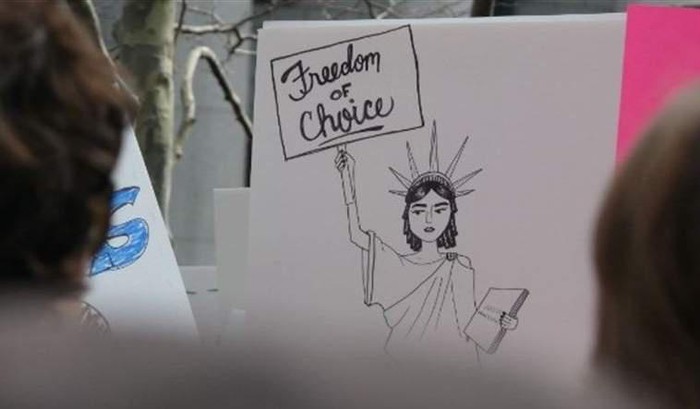 Freedom
OF
Choice